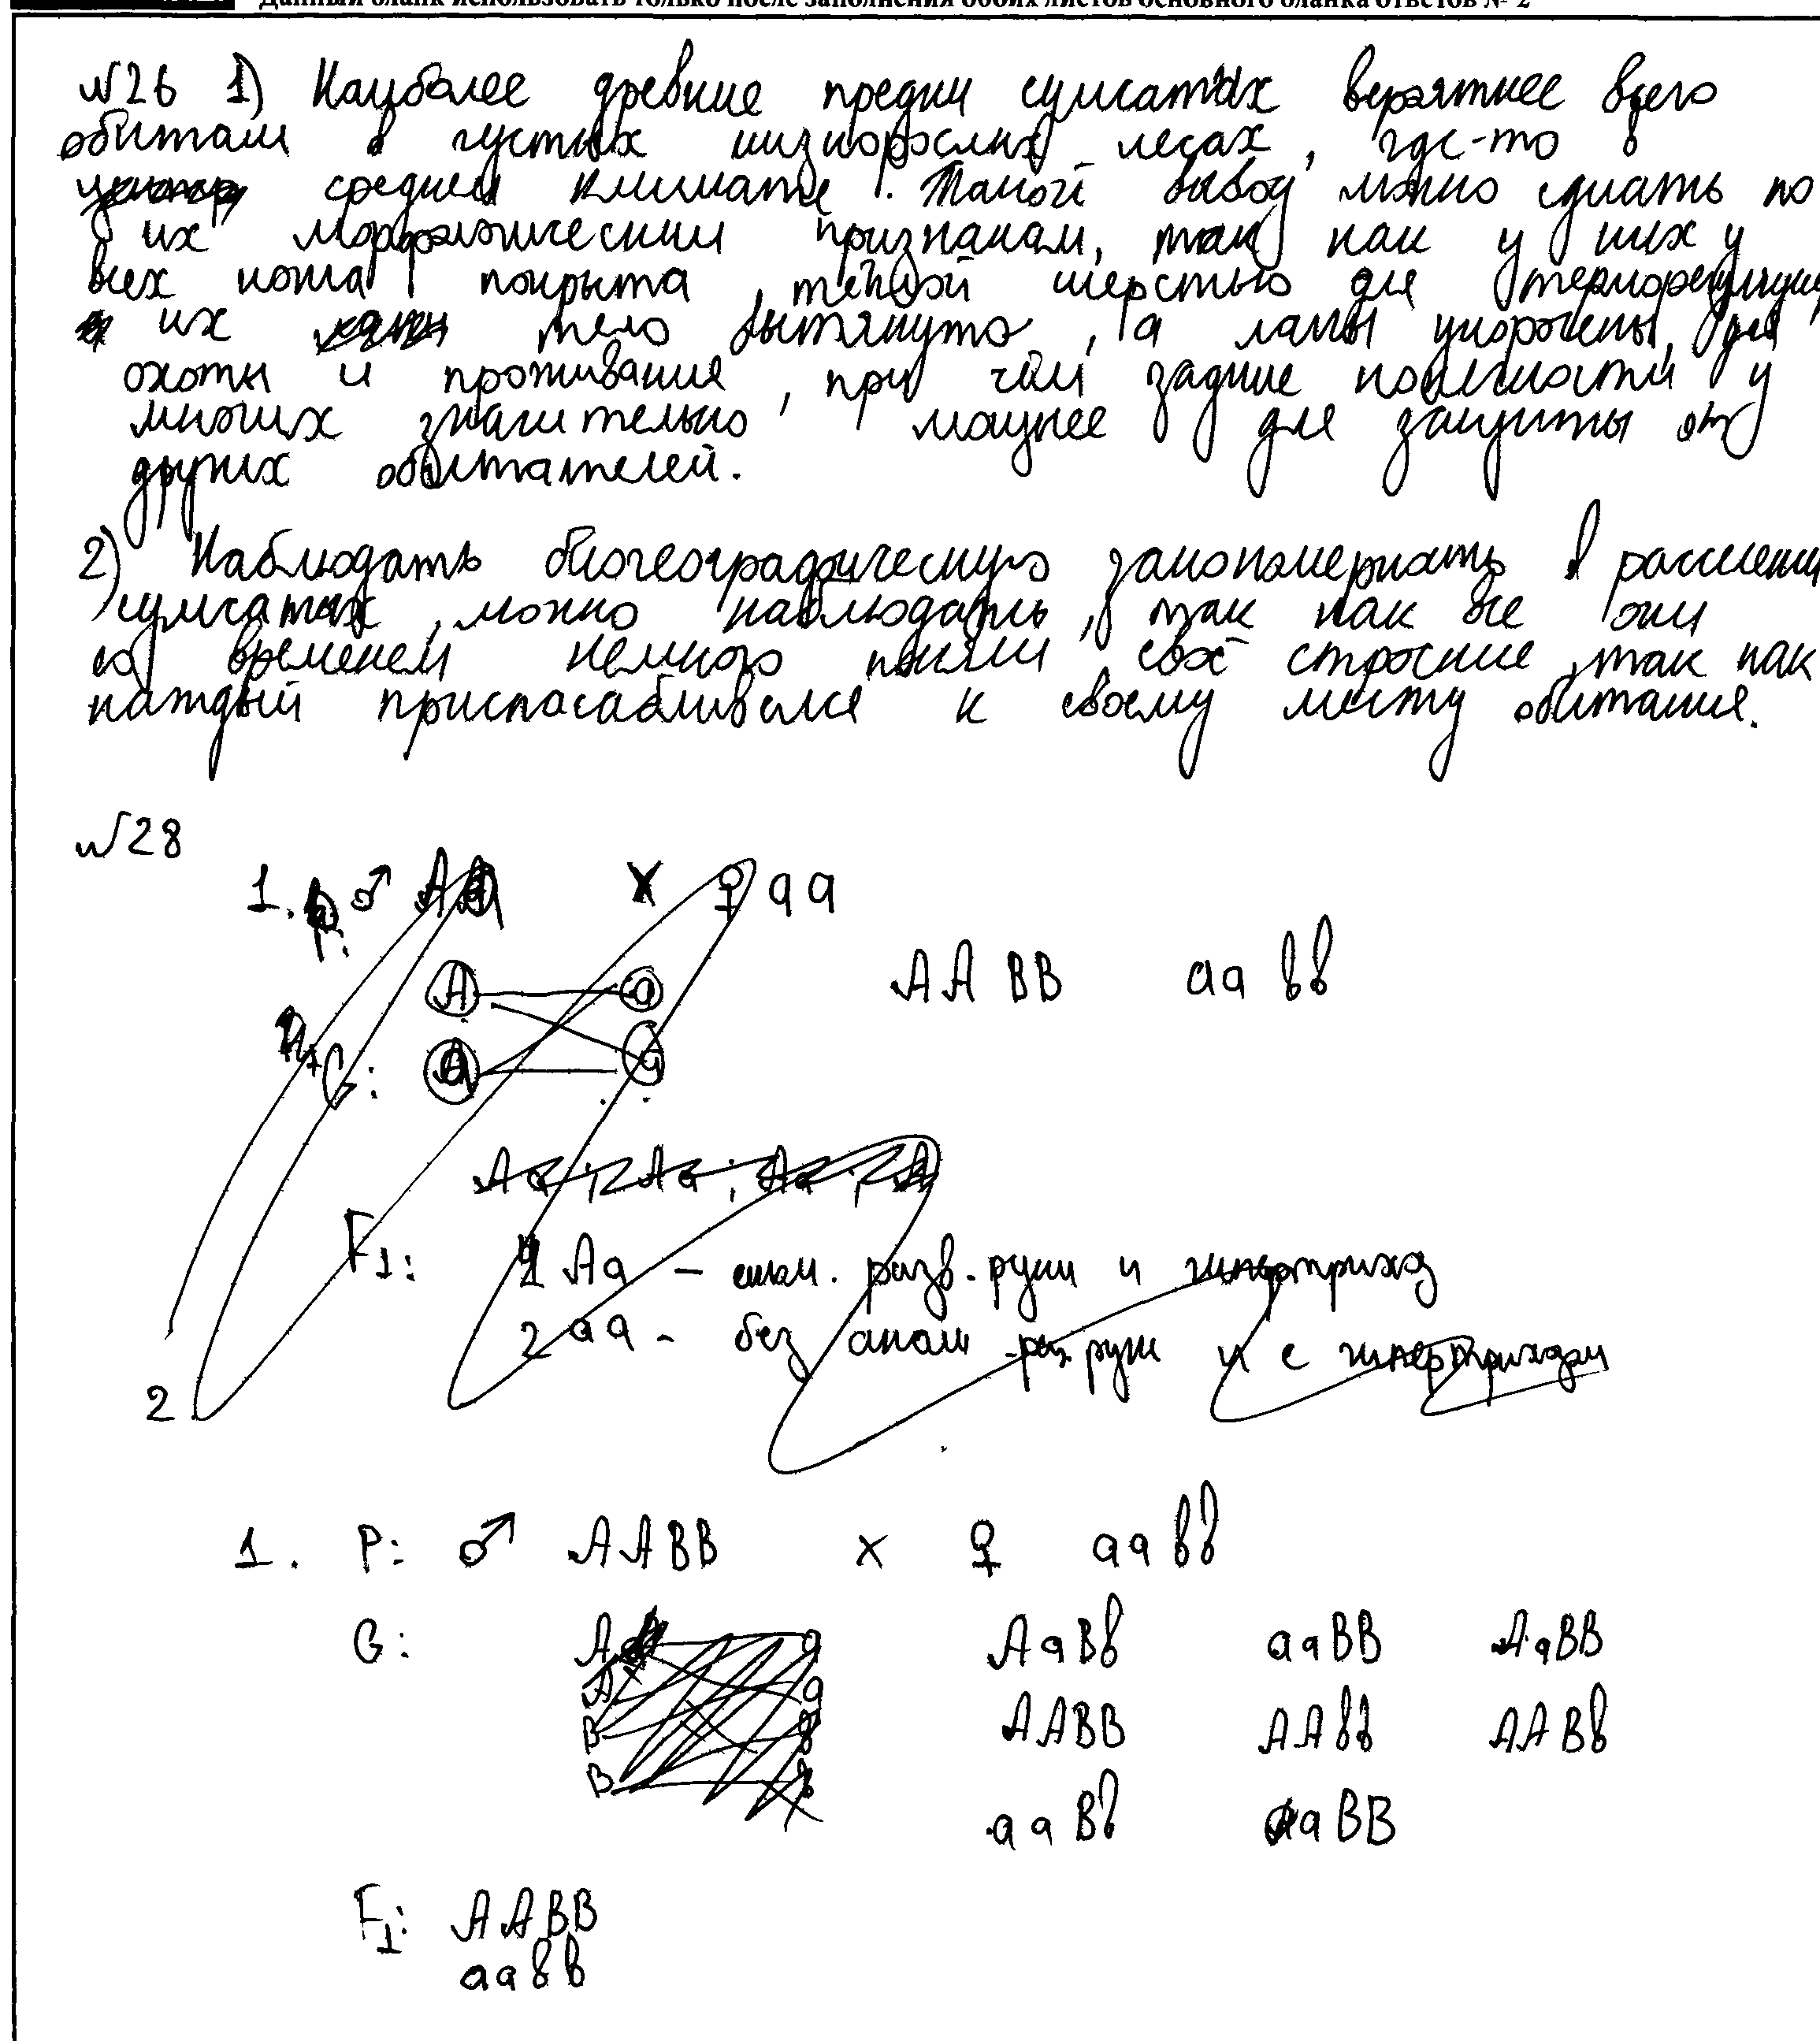 Данный бланк использовать только после заполнения обоих листов основного бланка ответов № 2
№26 1) Наиболее древние предки сумчатых вероятнее всего
обитали в густых низкорослых лесах, где-то в
среднем климате. Такой вывод можно сделать по
их морфологическим признакам, так как у них у
всех кожа покрыта тёплой шерстью для терморегуляции
их тело вытянуто, а лапы укорочены для
охоты и проживания, при чём задние конечности у
многих значительно мощнее для защиты от
других обитателей.
2) Наблюдать биогеографическую закономерность в расселении
сумчатых можно наблюдать, так как все они
со временем немного свое строение так как
каждый приспосабливался к своему месту обитания.
№28
1. P: ♂ AA x ♀ aa
A a
AA BB aa вв
G: a
Aa; Aa; Aa;
F1: Aa – аном. разв. руки и гипертрихоз
2 aa – без аном. раз. руки и с гипертрихозом
2
1. P: ♂ AABB x ♀ aaвв
G: A a AaBв aaBB AaBB
A a AABB AAвв AABв
B в
B в aaBв aBB
F1: AABB
aaвв